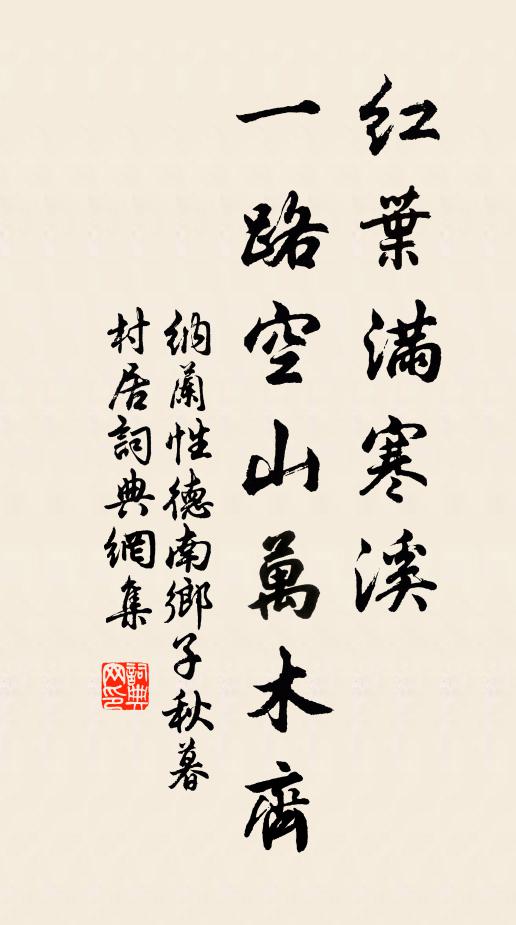 紅葉滿寒溪
一路空山萬木齊
納蘭性德南鄉子秋暮
村居詞典網集
詞典